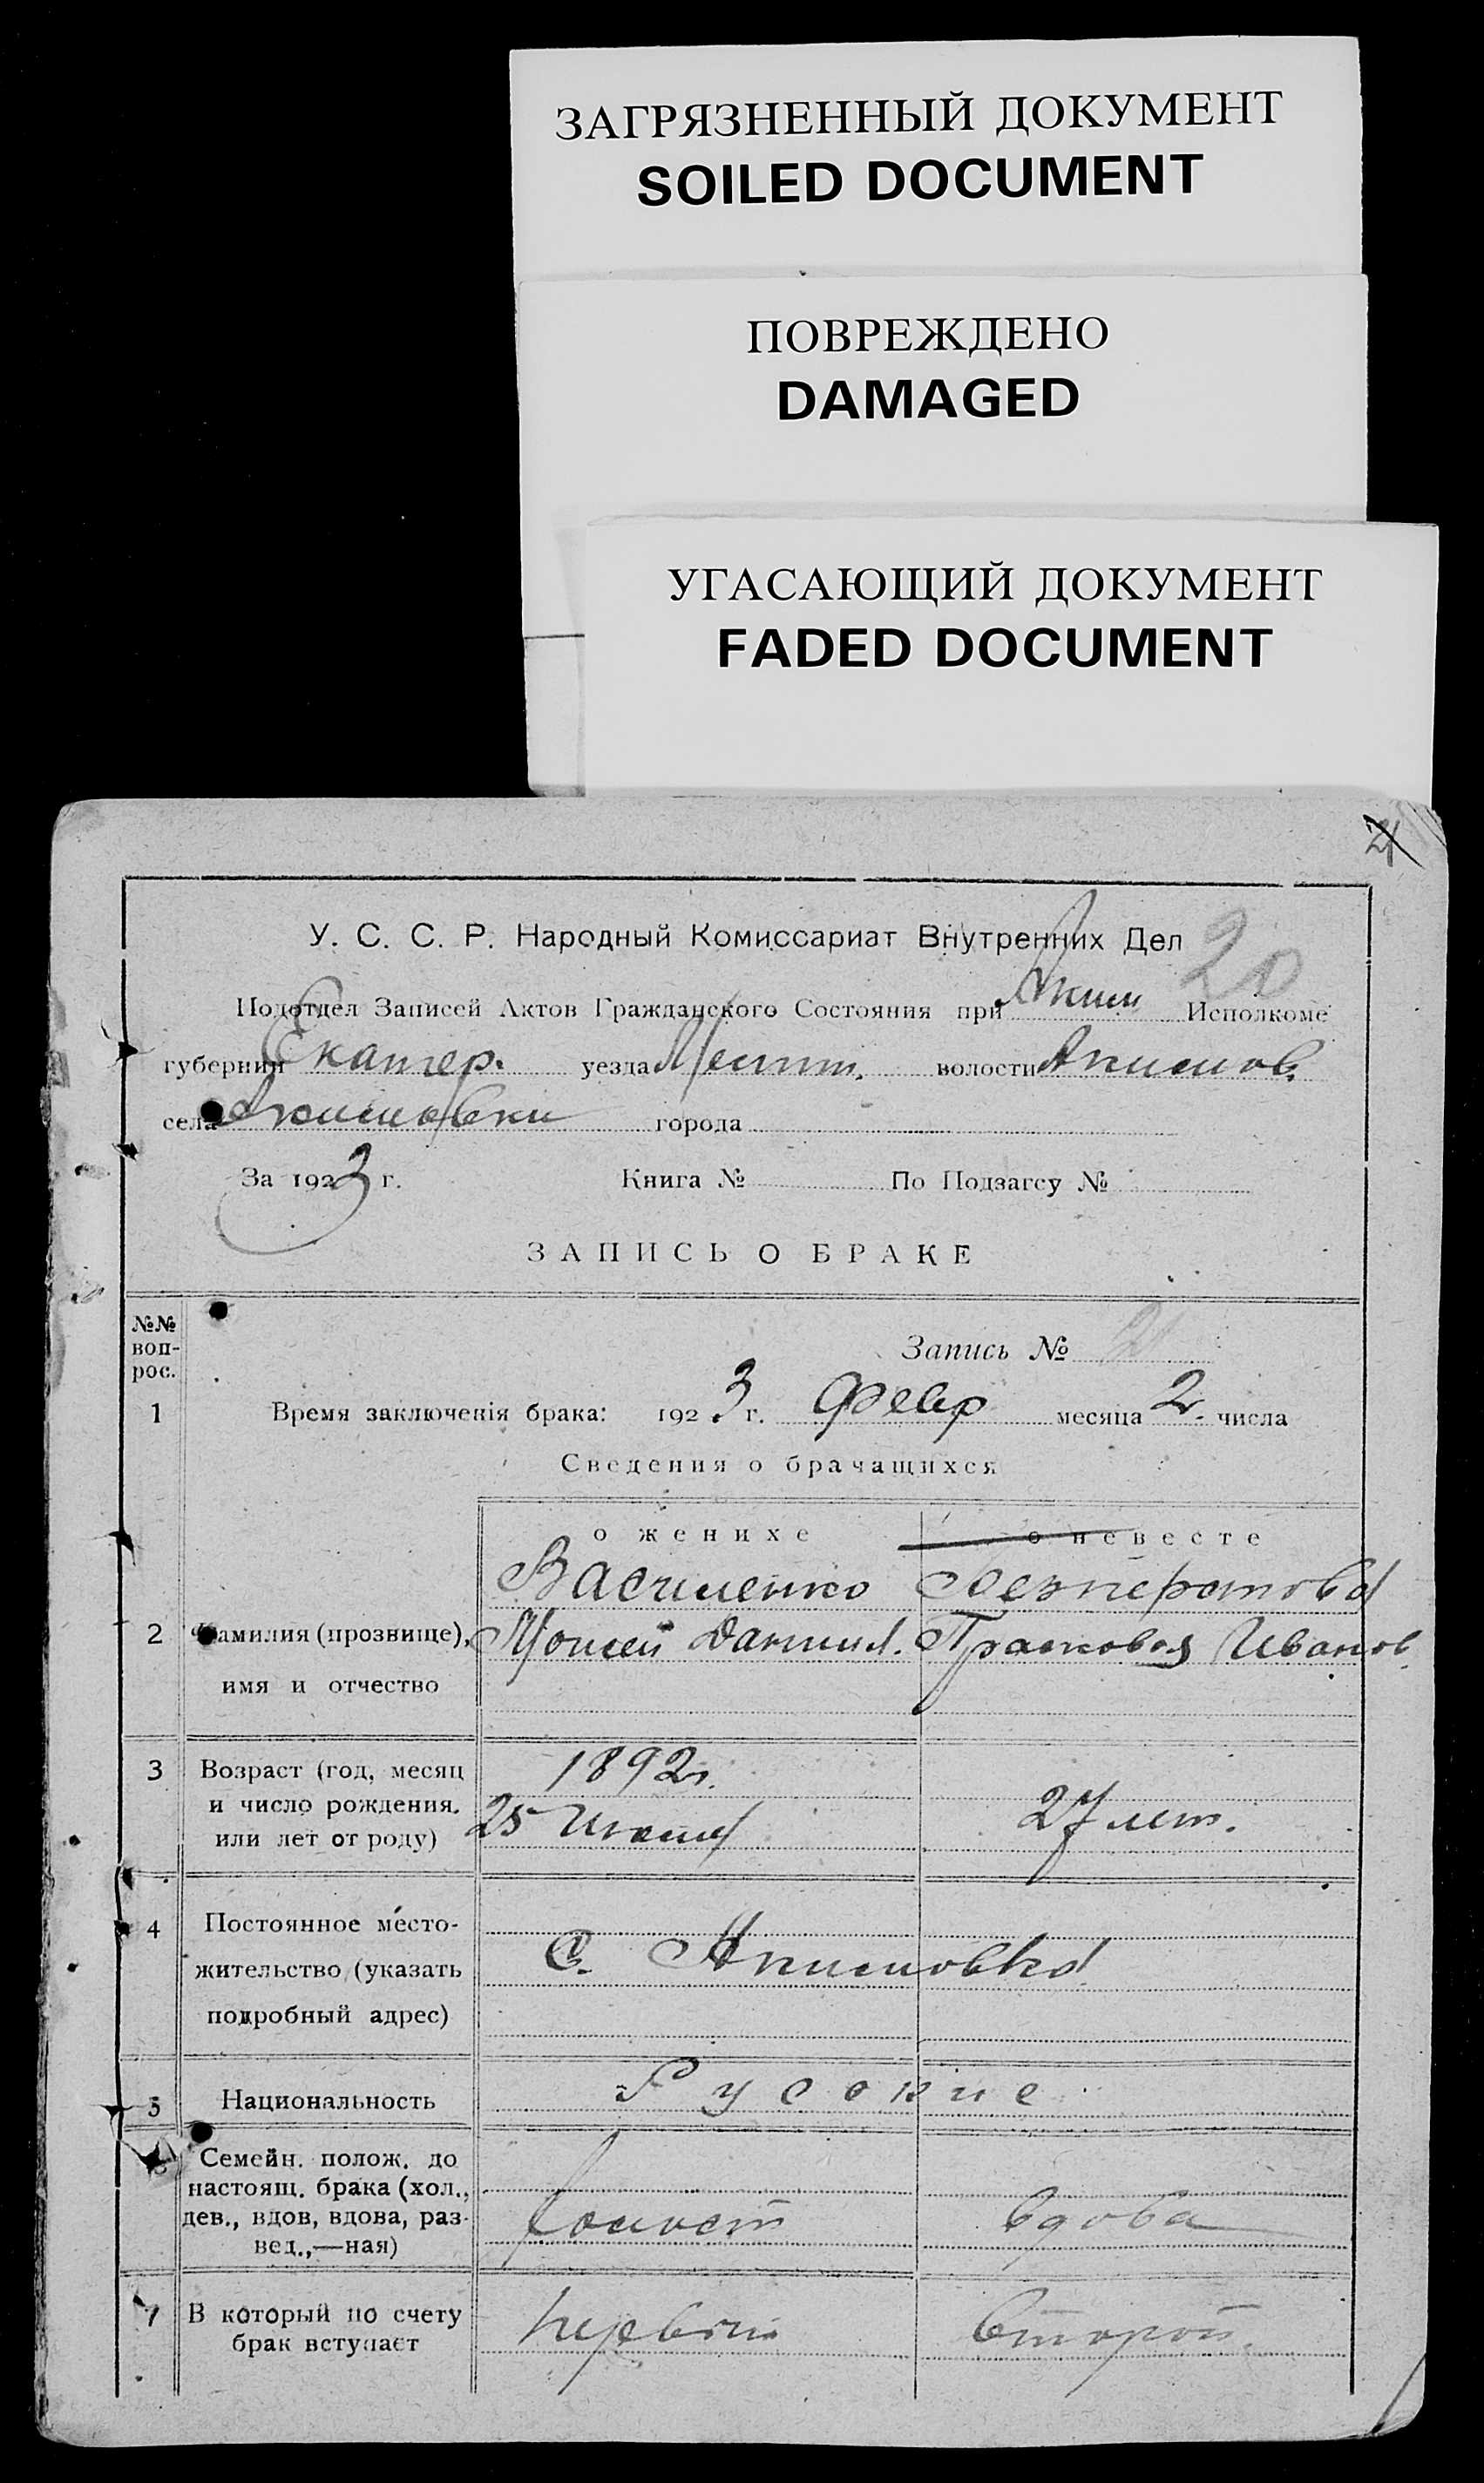 ЗАГРЯЗНЕННЫЙ ДОКУМЕНТ
SOILED DOCUMENT
ПОВРЕЖДЕНО
DAMAGED
УГАСАЮЩИЙ ДОКУМЕНТ
FADED DOCUMENT
У. С. С. Р. Народный Комиссариат Внутренних Дел
20
Подотдел Записей Актов Гражданского Состояния при Аким Исполкоме
губернии Екатер. уезда Мелит. волости Акимов.
села Акимовки города
За 1923 г. Книга № По Подзагсу №
ЗАПИСЬ О БРАКЕ
№№ воп-
рос.
Запись №
1 Время заключенія брака: 1923 г. Февр месяца 2 числа
Сведения о брачащихся
о женихе о невесте
Василенко
2 Фамилия (прозвище), Моисей Даниил. Прасковья Иванов.
имя и отчество
3 Возраст (год, месяц 1892 г.
и число рождения, 25 27 лет.
или лет от роду)
4 Постоянное место-
жительство (указать С. Акимовка
подробный адрес)
5 Национальность Русские
6 Семейн. полож. до
настоящ. брака (хол.,
дев., вдов, вдова, раз- холост вдова
вед.,—ная)
7 В который по счету первый второй
брак вступает